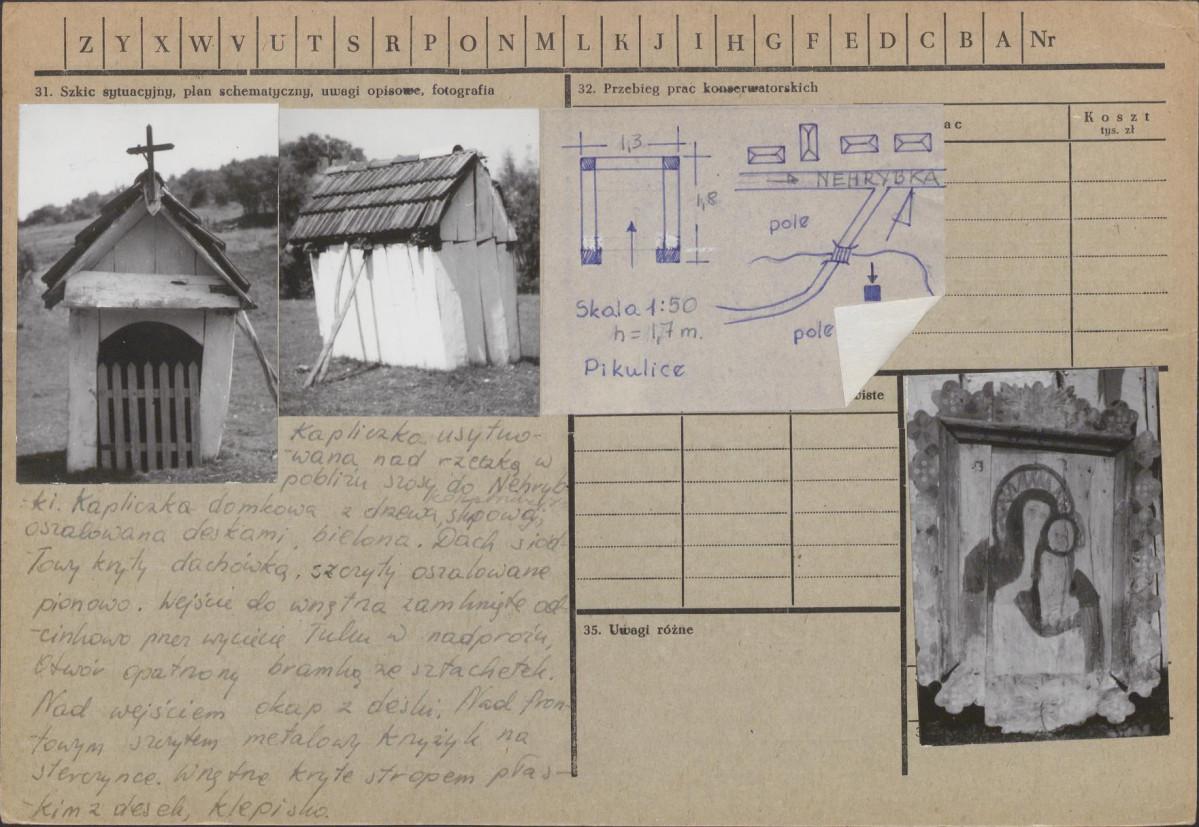 Z Y X W V U T S R P O N M L K J I H G F E D C B A Nr
31. Szkic sytuacyjny, plan schematyczny, uwagi opisowe, fotografia
32. Przebieg prac konserwatorskich
ac
Koszt
tys. zł
1,3
1,8
NEHRYBKA
pole
Skala 1:50
h = 1,7 m.
pole
Pikulice
iste
Kapliczka usytuo-
-wana nad rzeczką w
pobliżu szosy do Nehryb-
-ki. Kapliczka domkowa z drzewa, słupowa,
oszalowana deskami, bielona. Dach siod-
łowy kryty dachówką, szczyty oszalowane
pionowo. Wejście do wnętrza zamknięte od-
-cinkowo przez wycięcie łuku w nadprożu,
Otwór opatrzony bramką ze sztachetek.
Nad wejściem okap z deski. Nad fron-
-towym szczytem metalowy krzyżyk na
sterczynce. Wnętrze kryte stropem płas-
-kim z desek, klepisko.
35. Uwagi różne